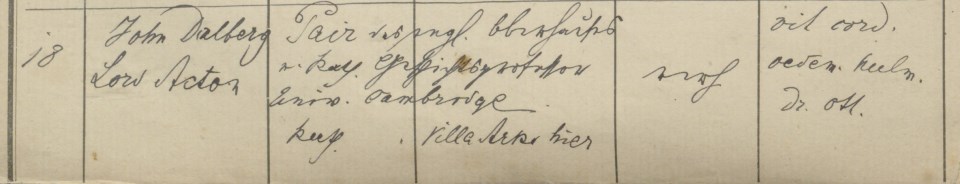 18
John Dalberg
Lord Acton
Pair des engl. Oberhauses
u. kath. Geschichtsprofessor
Univ. Cambridge
kath. Villa Arko hier
verh
vit cord.
oedem. pulm.
Dr. Ott.